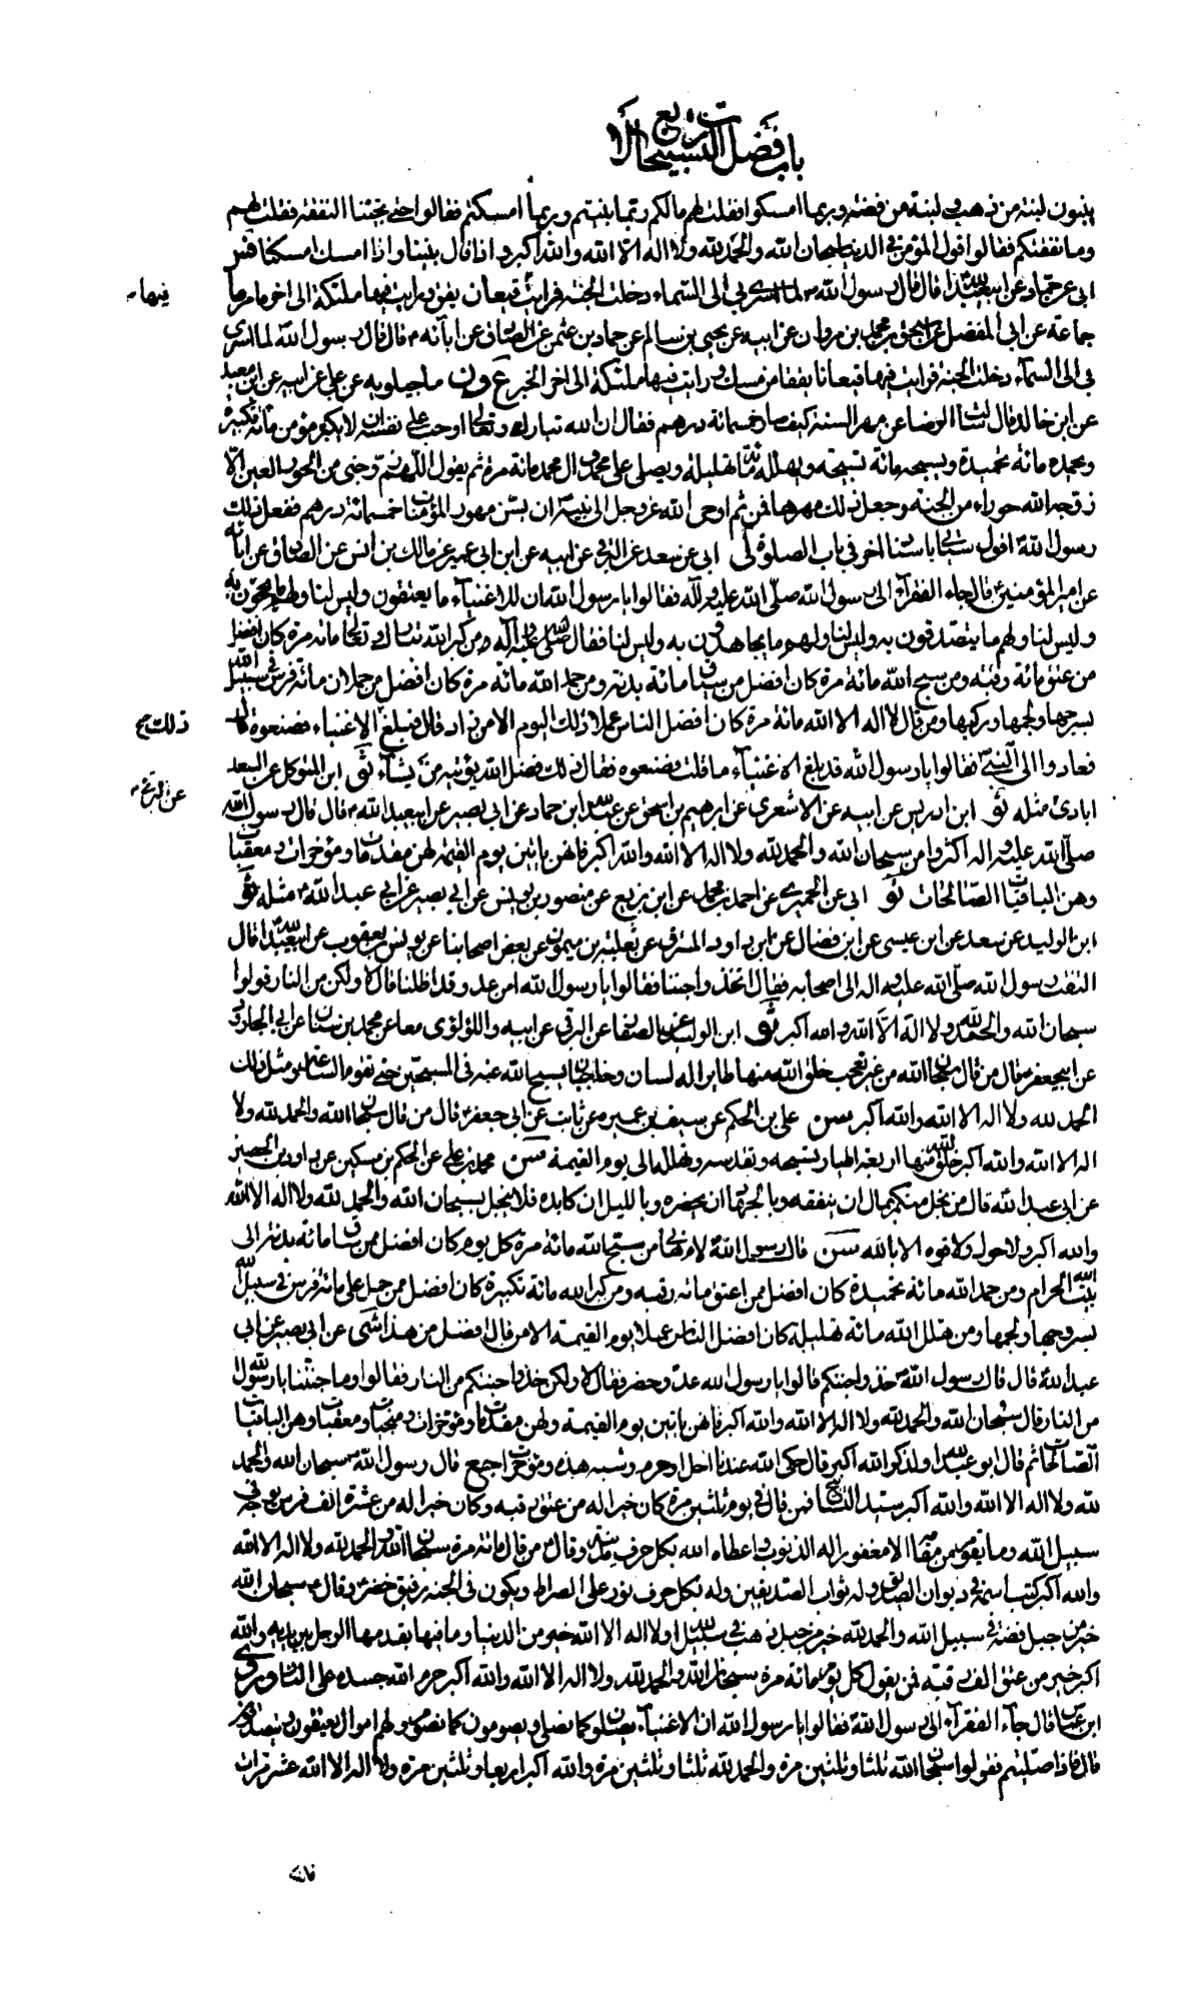 باب فضل التسبيحات الاربع
يبنون لبنة من ذهب لبنة من فضة وربما امسكوا فقلت لهم مالكم ربما بنيتم وربما امسكتم فقالوا حتى تجيئنا النفقة فقلت لهم
وما نفقتكم فقالوا قول المؤمن في الدنيا سبحان الله والحمد لله ولا اله الا الله والله اكبر واذا قال بنينا واذا امسك امسكنا
ابي عبد الله قال قال رسول الله لما اسرى بي الى السماء دخلت الجنة فرايت قيعان يقق ورايت فيها ملئكة الى اخر ما مر
فيها
جماعة عن ابي المفضل عن اسحق بن محمد بن مروان عن ابيه عن يحيى بن سالم عن حماد بن عثمن عن الصادق عن ابآئه قال قال رسول الله لما اسرى
بي الى السمآء دخلت الجنة فرايت فيها قيعانا يققا من مسك ورايت فيها ملئكة الى اخر الخبر ع ون ماجيلويه عن علي عن ابيه عن ابن معبد
عن ابن خالد قال سالت الرضا عن مهر السنة كيف صار خمسمائة درهم فقال ان الله تبارك وتعالى اوجب على نفسه ان لا يكبره مؤمن مائة تكبيرة
ويحمده مائة تحميدة ويسبحه مائة تسبيحة ويهلله مائة تهليلة ويصلي على محمد وال محمد مائة مرة ثم يقول اللهم زوجني من الحور العين الا
زوجه الله حوراء من الجنة وجعل ذلك مهرها فمن ثم اوحى الله عز وجل الى نبيه ان يسن مهور المؤمنات خمسمائة درهم ففعل ذلك
رسول الله اقول سياتي باسناد اخر في باب الصلوة لى ابي عن سعد عن البرقي عن ابيه عن ابن ابي عمير عن مالك بن انس عن الصادق عن ابائه
عن امير المؤمنين قال جاء الفقرآء الى رسول الله صلى الله عليه وآله فقالوا يا رسول الله ان للاغنيآء ما يعتقون وليس لنا ولهم ما يحجون به
وليس لنا ولهم ما يتصدقون به وليس لنا ولهم ما يجاهدون به وليس لنا فقال صلى الله عليه وآله من كبر الله تبارك وتعالى مائة مرة كان افضل
من عتق مائة رقبة ومن سبح الله مائة مرة كان افضل من سياق مائة بدنة ومن حمد الله مائة مرة كان افضل من حملان مائة فرس في سبيل الله
بسرجها ولجمها وركبها ومن قال لا اله الا الله مائة مرة كان افضل الناس عملا ذلك اليوم الا من زاد قال فبلغ الاغنياء فصنعوه قال
ذلك صح
فعادوا الى النبي فقالوا يا رسول الله قد بلغ الاغنيآء ما قلت فصنعوه فقال ذلك فضل الله يؤتيه من يشآء ثو ابن المتوكل عن السعد
ابادي مثله ثو ابن ادريس عن ابيه عن الاشعري عن ابرهيم بن اسحق عن عبد الله ابن حماد عن ابي بصير عن ابي عبد الله قال قال رسول الله
عن البرقي
صلى الله عليه واله اكثروا من سبحان الله والحمد لله ولا اله الا الله والله اكبر فانهن ياتين يوم القيمة لهن مقدمات ومؤخرات ومعقبات
وهن الباقيات الصالحات ثو ابي عن الحميري عن احمد بن محمد عن ابن بزيع عن منصور بن يونس عن ابي بصير عن ابي عبد الله مثله ثو
ابن الوليد عن سعد عن ابن عيسى عن ابن فضال عن ابي داود المسترق عن ثعلبة بن ميمون عن بعض اصحابنا عن يونس بن يعقوب عن ابي عبد الله قال
التفت رسول الله صلى الله عليه واله الى اصحابه فقال اتخذوا جننا فقالوا يا رسول الله امن عدو قد اظلنا قال لا ولكن من النار قولوا
سبحان الله والحمد لله ولا اله الا الله والله اكبر ثو ابن الوليد عن الصفار عن البرقي عن ابيه واللؤلؤي معا عن محمد بن سنان عن ابي الجارود
عن ابي جعفر قال من قال سبحان الله من غير تعجب خلق الله منها طايرا له لسان وجناحان يسبح الله عنه في المسبحين حتى تقوم الساعة ومثل ذلك
الحمد لله ولا اله الا الله والله اكبر سن علي بن الحكم عن سيف بن عميرة عن ثابت عن ابي جعفر قال من قال سبحان الله والحمد لله ولا
اله الا الله والله اكبر خلق الله منها اربعة اطيار تسبحه وتقدسه وتهلله الى يوم القيمة سن محمد بن علي عن الحكم بن مسكين عن داود بن الحصين
عن ابي عبد الله قال من بخل منكم بمال ان ينفقه وبالجهاد ان يحضره وبالليل ان يكابده فلا يبخل بسبحان الله والحمد لله ولا اله الا الله
والله اكبر ولا حول ولا قوة الا بالله سن قال رسول الله لام هاني من سبح الله مائة مرة كل يوم كان افضل ممن ساق مائة بدنة الى
بيت الله الحرام ومن حمد الله مائة تحميدة كان افضل ممن اعتق مائة رقبة ومن كبر الله مائة تكبيرة كان افضل ممن حمل على مائة فرس في سبيل الله
بسروجها ولجمها ومن هلل الله مائة تهليلة كان افضل الناس عملا يوم القيمة الا من قال افضل من هذا شى عن ابي بصير عن ابي
عبد الله قال قال رسول الله خذوا جننكم قالوا يا رسول الله عدو حضر فقال لا ولكن خذوا جننكم من النار فقالوا وما جنتنا يا رسول الله
من النار قال سبحان الله والحمد لله ولا اله الا الله والله اكبر فانهن ياتين يوم القيمة ولهن مقدمات ومؤخرات ومنجيات ومعقبات وهن الباقيات
الصالحات ثم قال ابو عبد الله ولذكر الله اكبر قال ذكر الله عندما احل او حرم وشبه هذا ومؤخرات جع قال رسول الله سبحان الله والحمد
لله ولا اله الا الله والله اكبر سيد التسابيح فمن قال في يوم ثلثين مرة كان خيرا له من عتق رقبة وكان خيرا له من عشرة الف فرس يوجه في
سبيل الله وما يقوم من مقامه الا مغفورا له الذنوب واعطاه الله بكل حرف مدينة وقال من قال مائة مرة سبحان الله والحمد لله ولا اله الا الله
والله اكبر كتب اسمه في ديوان الصديقين وله ثواب الصديقين وله بكل حرف نور على الصراط ويكون في الجنة رفيق خضر وقال سبحان الله
خير من جبل فضة في سبيل الله والحمد لله خير من جبل ذهب في سبيل الله ولا اله الا الله خير من الدنيا وما فيها يقدمها الرجل بين يديه والله
اكبر خير من عتق الف رقبة فمن يقول كل يوم مائة مرة سبحان الله والحمد لله ولا اله الا الله والله اكبر حرم الله جسده على النار وروى
ابن عباس قال جآء الفقرآء الى رسول الله فقالوا يا رسول الله ان الاغنيآء يصلون كما نصلي ويصومون كما نصوم ولهم اموال يعتقون ويتصدقون
قال فاذا صليتم فقولوا سبحان الله ثلثا وثلثين مرة والحمد لله ثلثا وثلثين مرة والله اكبر اربعا وثلثين مرة ولا اله الا الله عشر مرات